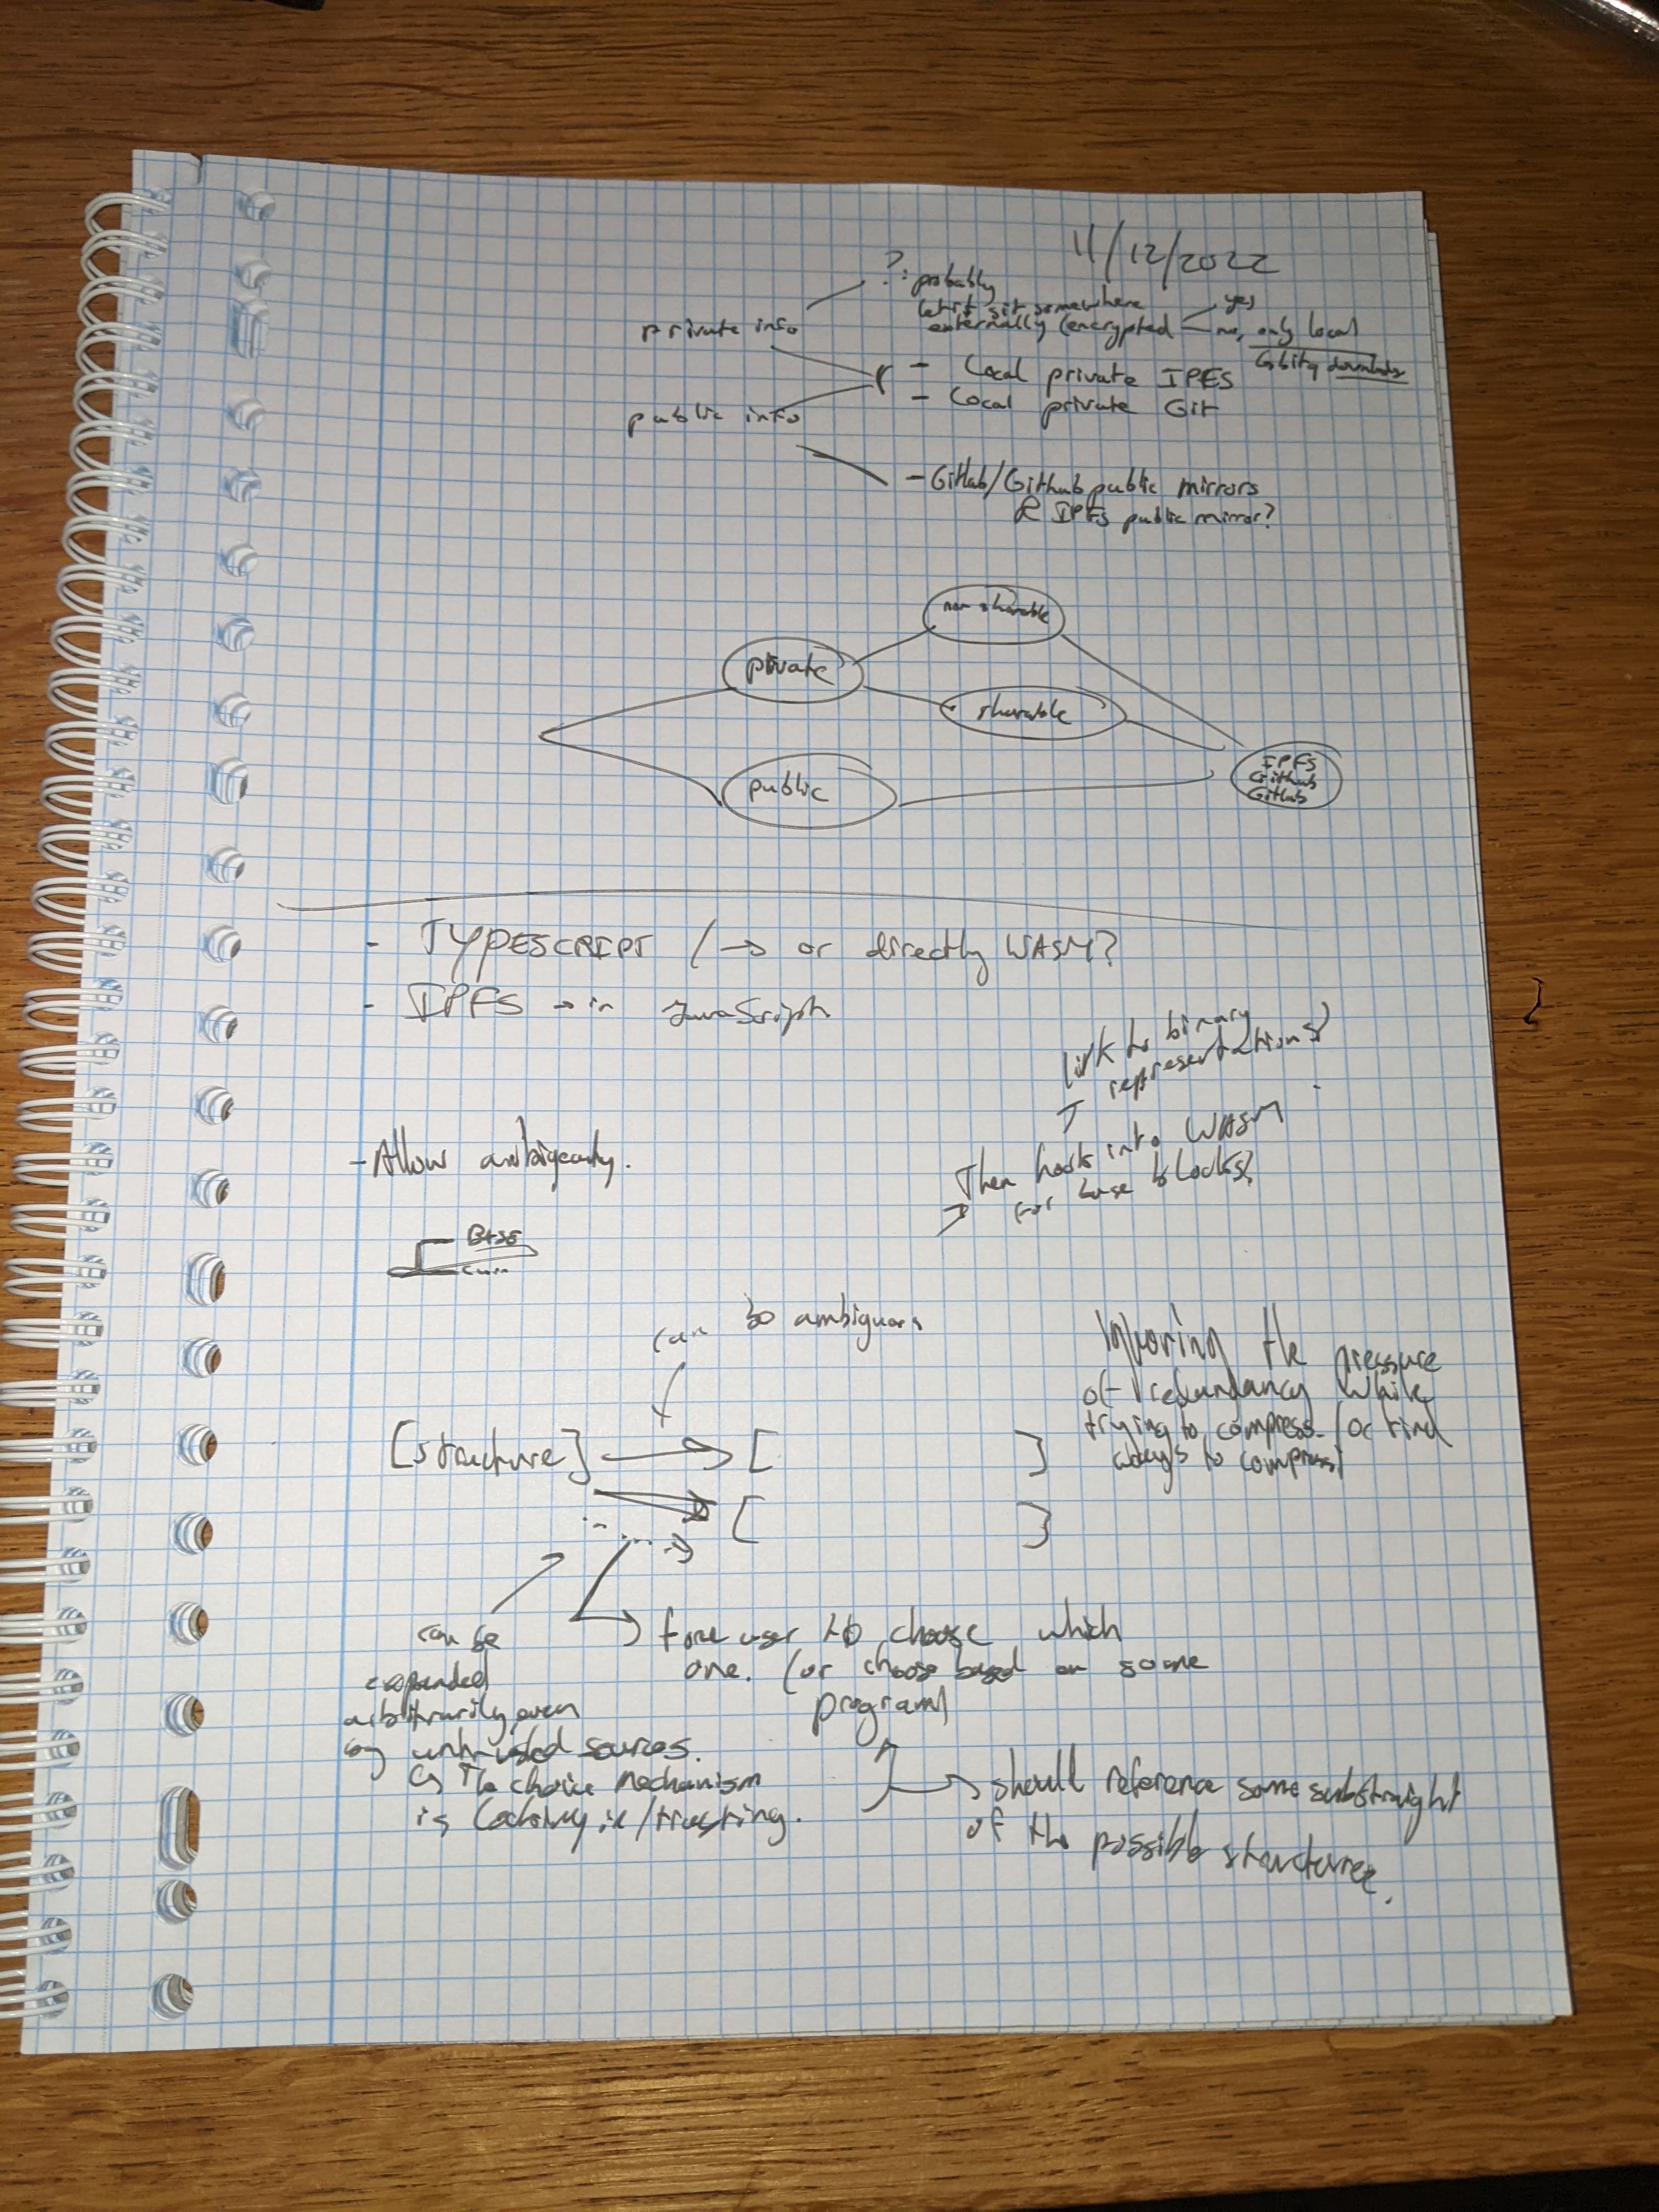 11/12/2022
?: probably
let it sit somewhere
externally (encrypted
yes
no, only local
private info
- Local private IPFS
- Local private Git
public info
- Gitlab/Github public mirrors
& IPFS public mirror?
non sharable
private
sharable
public
IPFS
Github
Gitlab
- TYPESCRIPT (→ or directly WASM?
- IPFS → in JavaScript
link to binary
representations?
- Allow ambiguity.
Then hooks into WASM
for base blocks?
BASE
can be ambiguous
Ignoring the pressure
of redundancy while
trying to compress (or find
ways to compress)
[structure] → [ ]
[ ]
can be
expanded
arbitrarily, even
by untrusted sources.
↳ The choice mechanism
is /trusting.
force user to choose which
one. (or choose based on some
program)
should reference some substraight
of the possible structures.